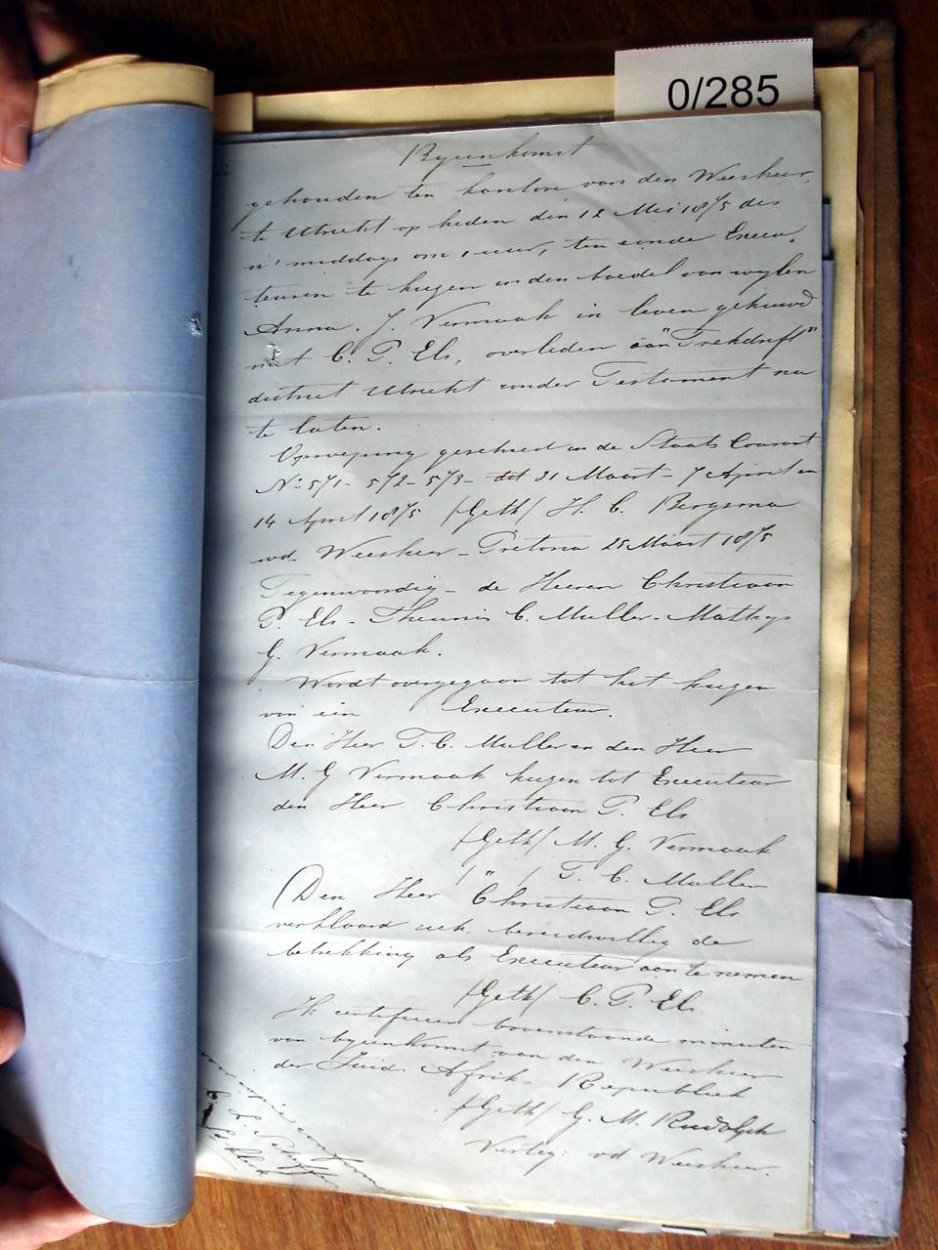 0/285
Byeenkomst
gehouden ten kantore van den Weesheer
te Utrecht op heden den 12 Mei 1875 des
n' middags om 1 uur, ten einde Execu-
teuren te kiezen in den boedel van wylen
Anna. J. Vermaak in leven gehuwd
met C. P. Els, overleden aan "Trekdrift"
district Utrecht zonder Testament na
te laten.
Oproeping geschied in de Staats Courant
No: 571 - 572 - 573 - dd 31 Maart - 7 April en
14 April 1875 /Geth/ H. C. Bergsma
wd. Weesheer - Pretoria 25 Maart 1875
Tegenwoordig - de Heeren Christiaan
P. Els - Theunis C. Muller - Mathys
G. Vermaak.
Wordt overgegaan tot het kiezen
van een Executeur.
Den Heer T. C. Muller en den Heer
M. G Vermaak kiezen tot Executeur
den Heer Christiaan P. Els
/Geth/ M. G. Vermaak
/ " / T. C. Muller
Den Heer Christiaan P. Els
verklaard zich bereidwillig de
betrekking als Executeur aan te nemen
/Geth/ C. P. Els
Ik certifieer bovenstaande minuten
van byeenkomst van den Weesheer
der Zuid Afrik. Republiek
/Geth/ G. M. Rudolph
Verteg: vd Weesheer.